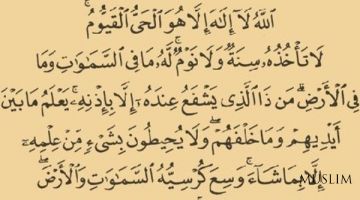 اللَّهُ لَا إِلَٰهَ إِلَّا هُوَ الْحَيُّ الْقَيُّومُ ۚ
لَا تَأْخُذُهُ سِنَةٌ وَلَا نَوْمٌ ۚ لَهُ مَا فِي السَّمَاوَاتِ وَمَا
فِي الْأَرْضِ ۗ مَن ذَا الَّذِي يَشْفَعُ عِندَهُ إِلَّا بِإِذْنِهِ ۚ يَعْلَمُ مَا بَيْنَ
أَيْدِيهِمْ وَمَا خَلْفَهُمْ ۖ وَلَا يُحِيطُونَ بِشَيْءٍ مِّنْ عِلْمِهِ
إِلَّا بِمَا شَاءَ ۚ وَسِعَ كُرْسِيُّهُ السَّمَاوَاتِ وَالْأَرْضَ ۖ
MUSLIM